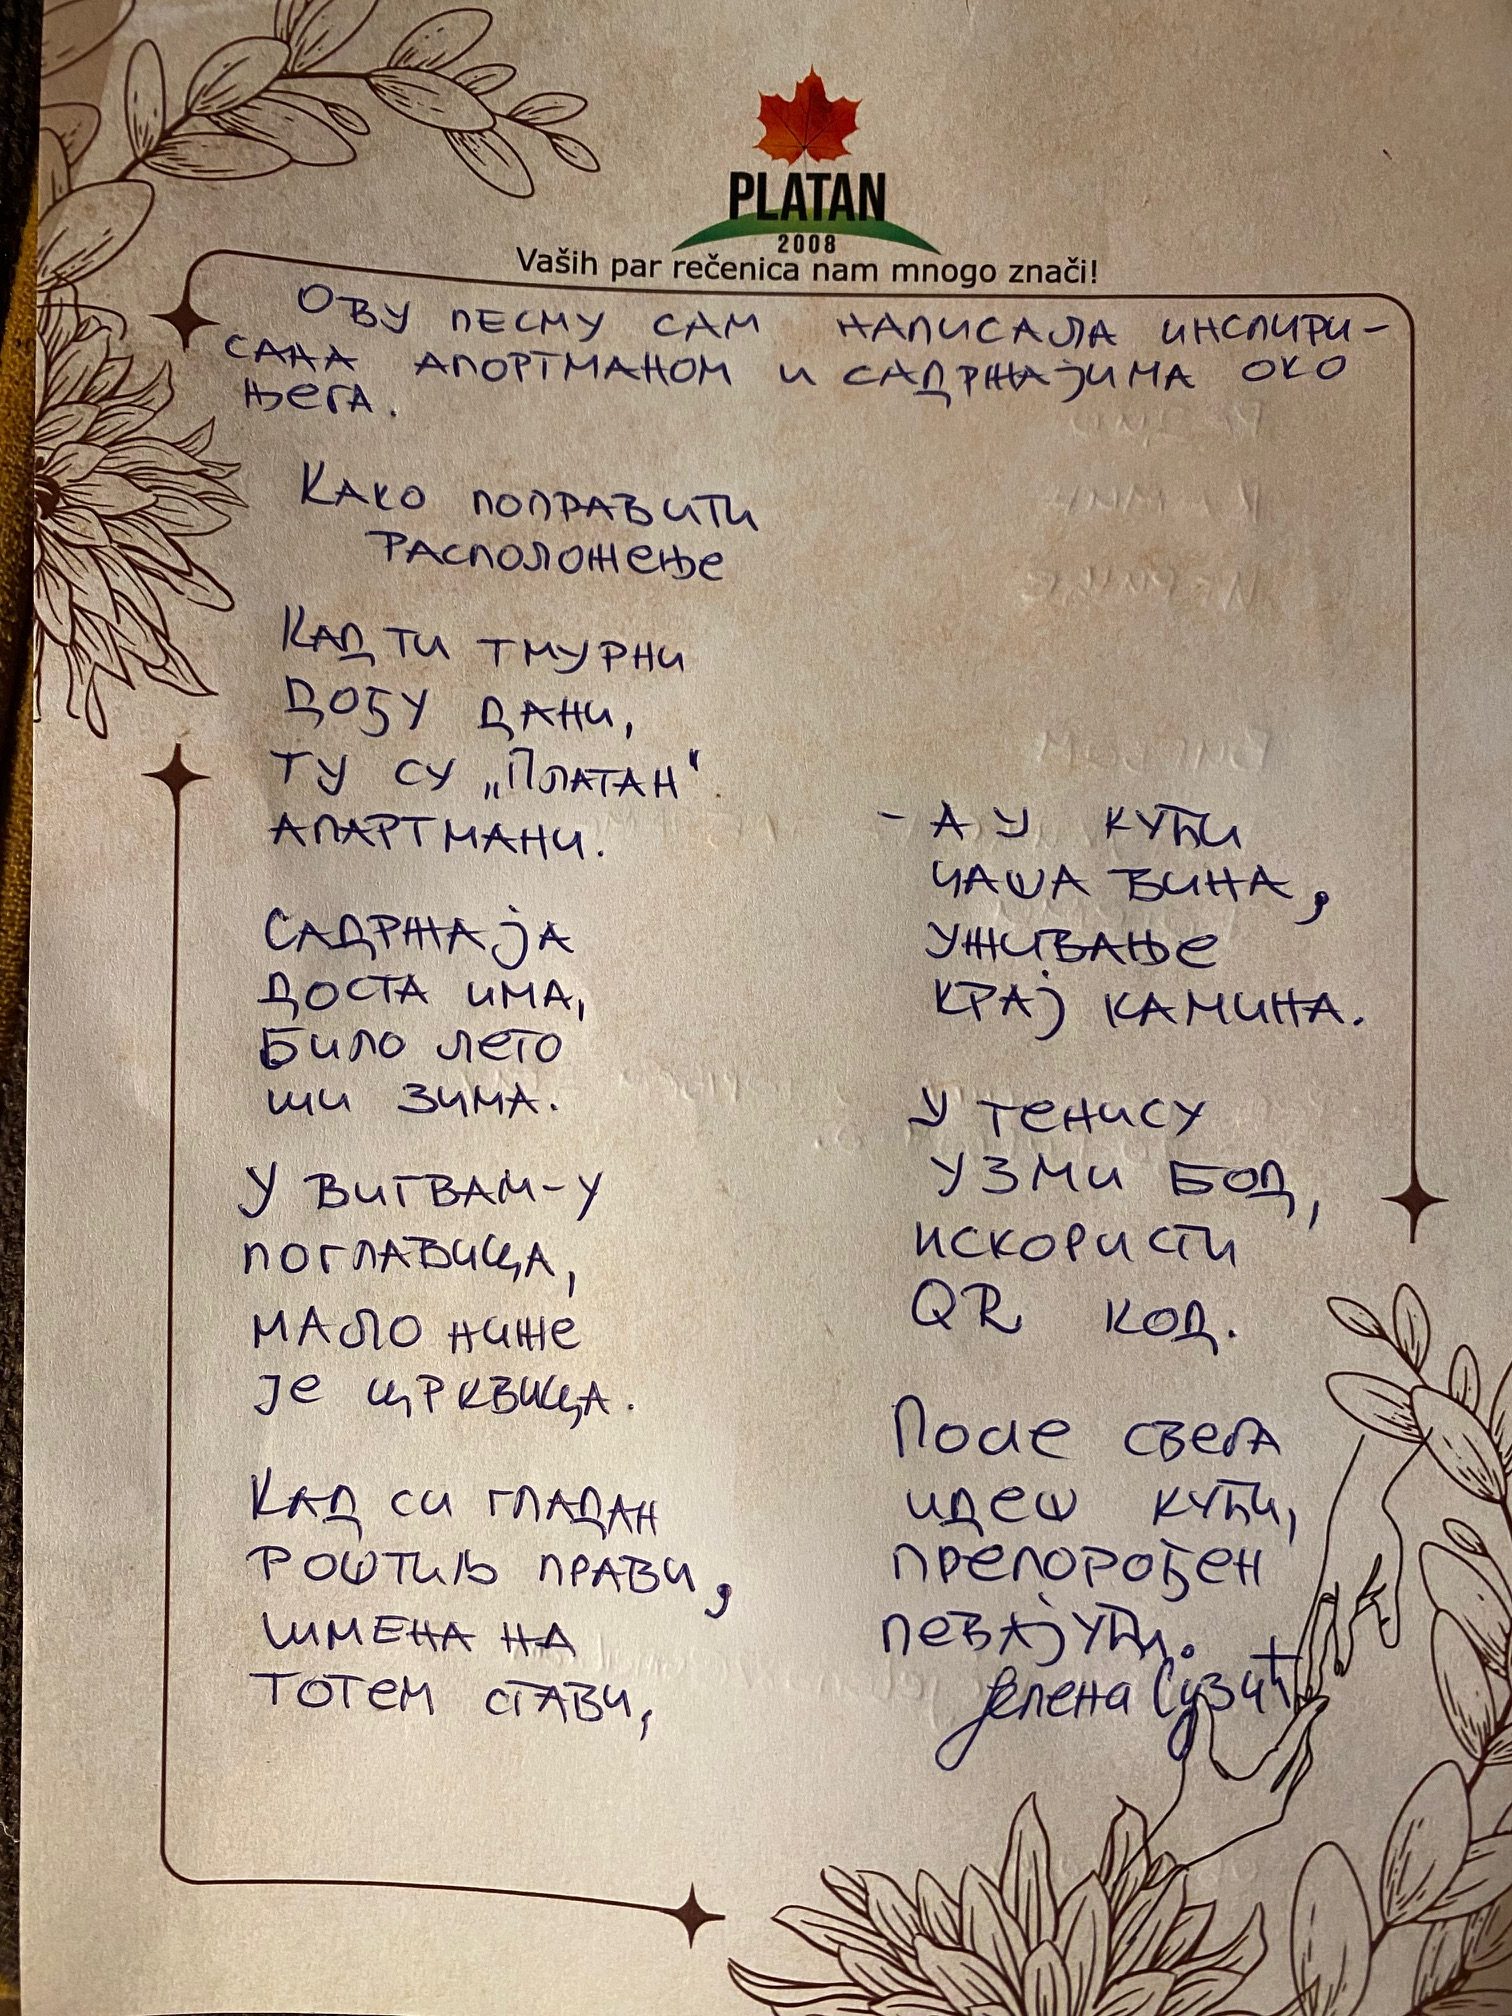 PLATAN
2008
Vaših par rečenica nam mnogo znači!
Ову песму сам написала инспири-
сана апортманом и садржајима око
њега.
Како поправити
расположење
Кад ти тмурни
дођу дани,
ту су „Платан“
апартмани.
Садржаја
доста има,
било лето
или зима.
У вигвам-у
поглавица,
мало ниже
је црквица.
Кад си гладан
роштиљ прави,
имена на
тотем стави,
- А у кући
чаша вина,
уживање
крај камина.
У тенису
узми бод,
искористи
QR код.
После свега
идеш кући,
препорођен
певајући.
Јелена Сузић